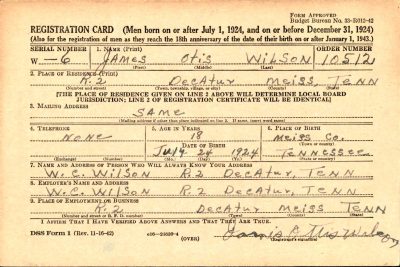 FORM APPROVED
Budget Bureau No. 33-R012-42
REGISTRATION CARD (Men born on or after July 1, 1924, and on or before December 31, 1924)
(Also for the registration of men as they reach the 18th anniversary of the date of their birth on or after January 1, 1943.)
SERIAL NUMBER 1. NAME (Print) ORDER NUMBER
W —6 JAMES OTIS WILSON 10512
(First) (Middle) (Last)
2. PLACE OF RESIDENCE (Print)
R.2 DECATUR MEISS, TENN
(Number and street) (Town, township, village, or city) (County) (State)
[THE PLACE OF RESIDENCE GIVEN ON LINE 2 ABOVE WILL DETERMINE LOCAL BOARD
JURISDICTION; LINE 2 OF REGISTRATION CERTIFICATE WILL BE IDENTICAL]
3. MAILING ADDRESS
SAME
(Mailing address if other than place indicated on line 2. If same, insert word same)
4. TELEPHONE 5. AGE IN YEARS 6. PLACE OF BIRTH
NONE 18 MEISS CO.
DATE OF BIRTH (Town or county)
July 24 1924 TENNESSEE
(Exchange) (Number) (Mo.) (Day) (Yr.) (State or country)
7. NAME AND ADDRESS OF PERSON WHO WILL ALWAYS KNOW YOUR ADDRESS
W. C. WILSON R.2 DECATUR, TENN
8. EMPLOYER'S NAME AND ADDRESS
W. C. WILSON R.2 DECATUR, TENN
9. PLACE OF EMPLOYMENT OR BUSINESS
R-2 DECATUR MEISS TENN
(Number and street or R. F. D. number) (Town) (County) (State)
I AFFIRM THAT I HAVE VERIFIED ABOVE ANSWERS AND THAT THEY ARE TRUE.
DSS Form 1 (Rev. 11-16-42) (OVER)
(Registrant's signature)